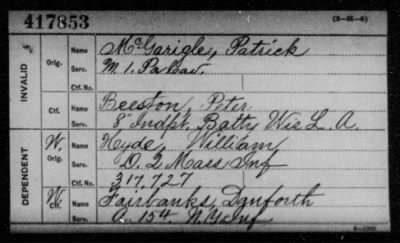 417853
(3-H-4)
INVALID
Orig.
Name McGarigle, Patrick
Serv. M. 1. Pa Cav.
Ctf. No.
Ctf.
Name Beeston, Peter
Serv. 8" Indpt. Batty Wis L. A.
DEPENDENT
W. Orig.
Name Hyde, William
Serv. D. 2 Mass Inf
Ctf. No. 317,727
W. Ctf.
Name Fairbanks, Danforth
Serv. 154. N.Y. Inf